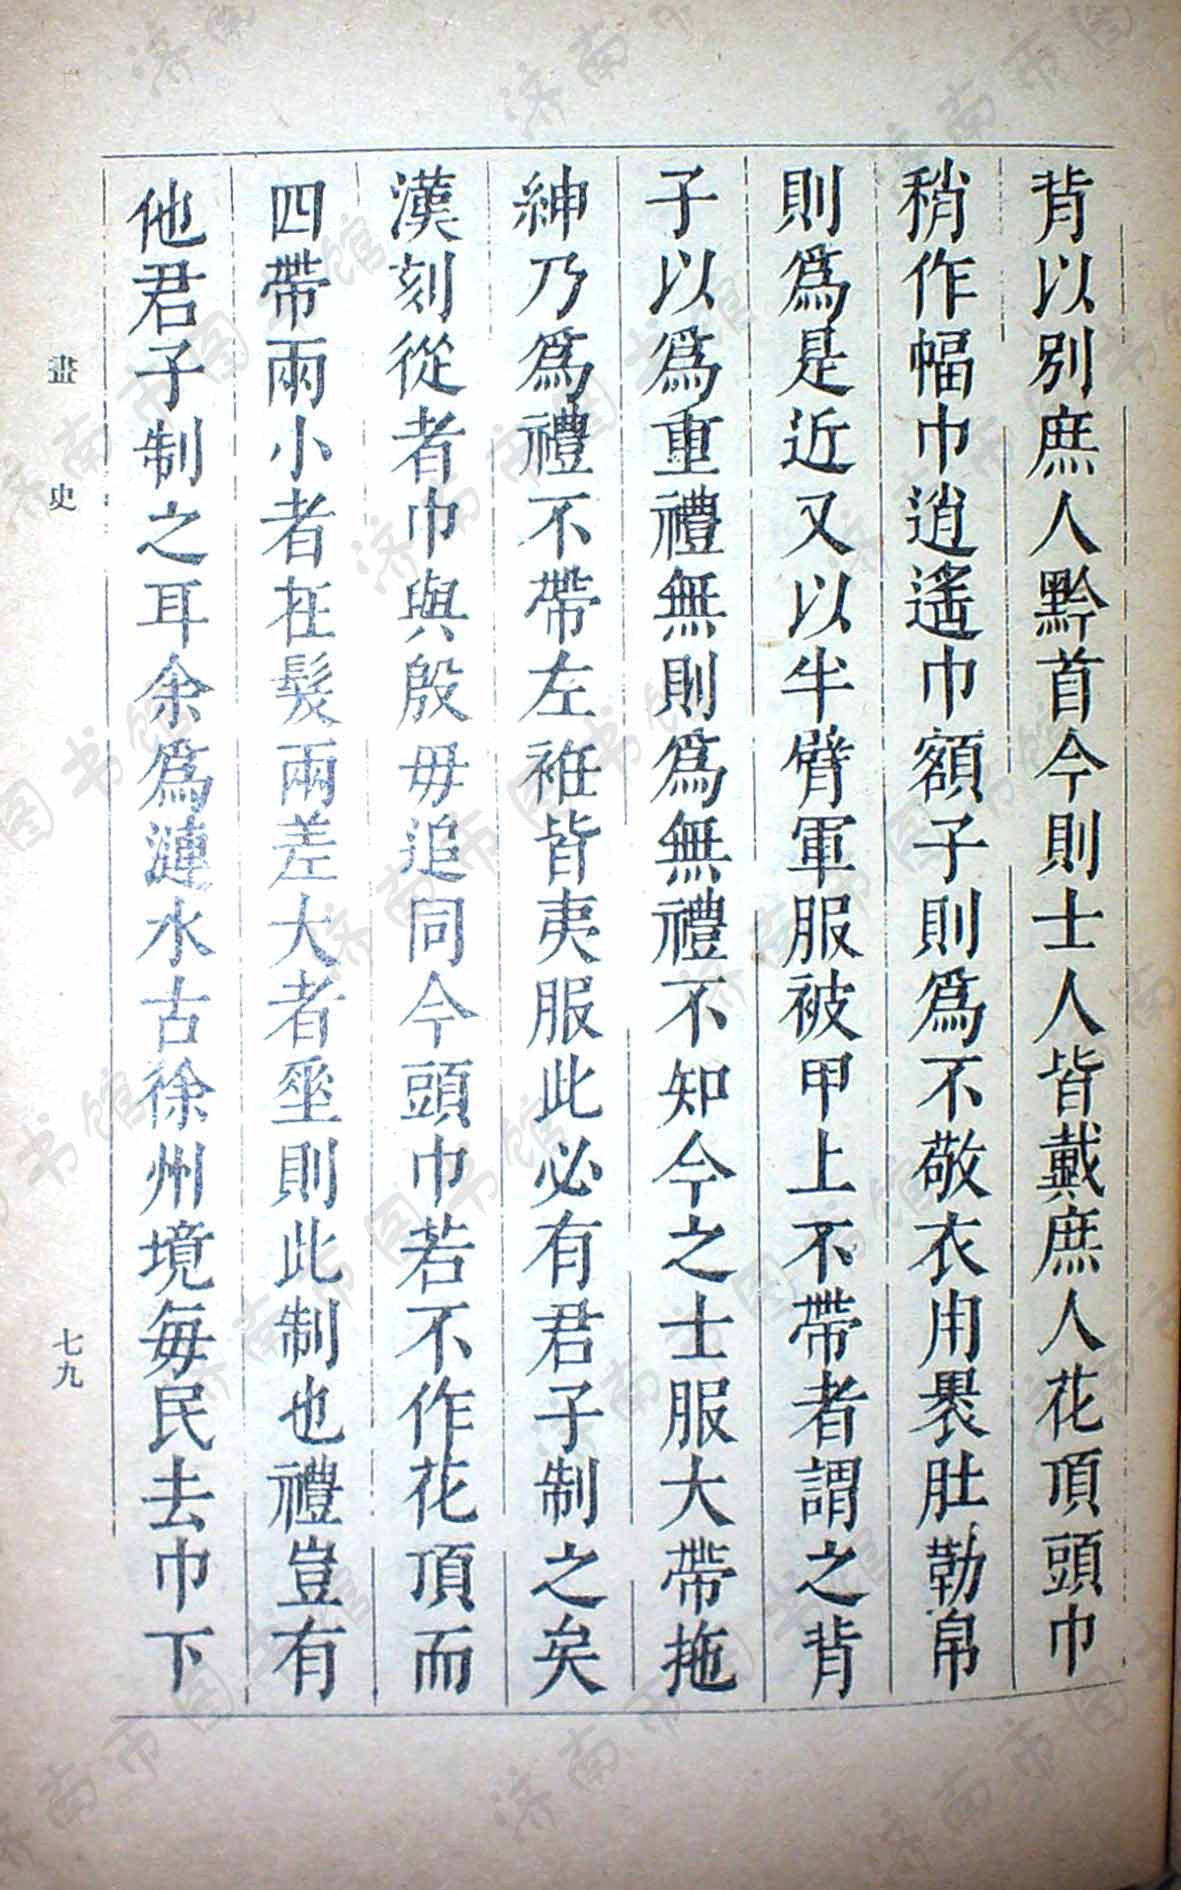 背以別庶人黔首今則士人皆戴庶人花頂頭巾
稍作幅巾逍遙巾額子則為不敬衣用裹肚勒帛
則為是近又以半臂軍服被甲上不帶者謂之背
子以為重禮無則為無禮不知今之士服大帶拖
紳乃為禮不帶左袵皆夷服此必有君子制之矣
漢刻從者巾與殷毋追同今頭巾若不作花頂而
四帶兩小者在髮兩差大者垂則此制也禮豈有
他君子制之耳余為漣水古徐州境每民去巾下
畫史
七九
济南市图书馆